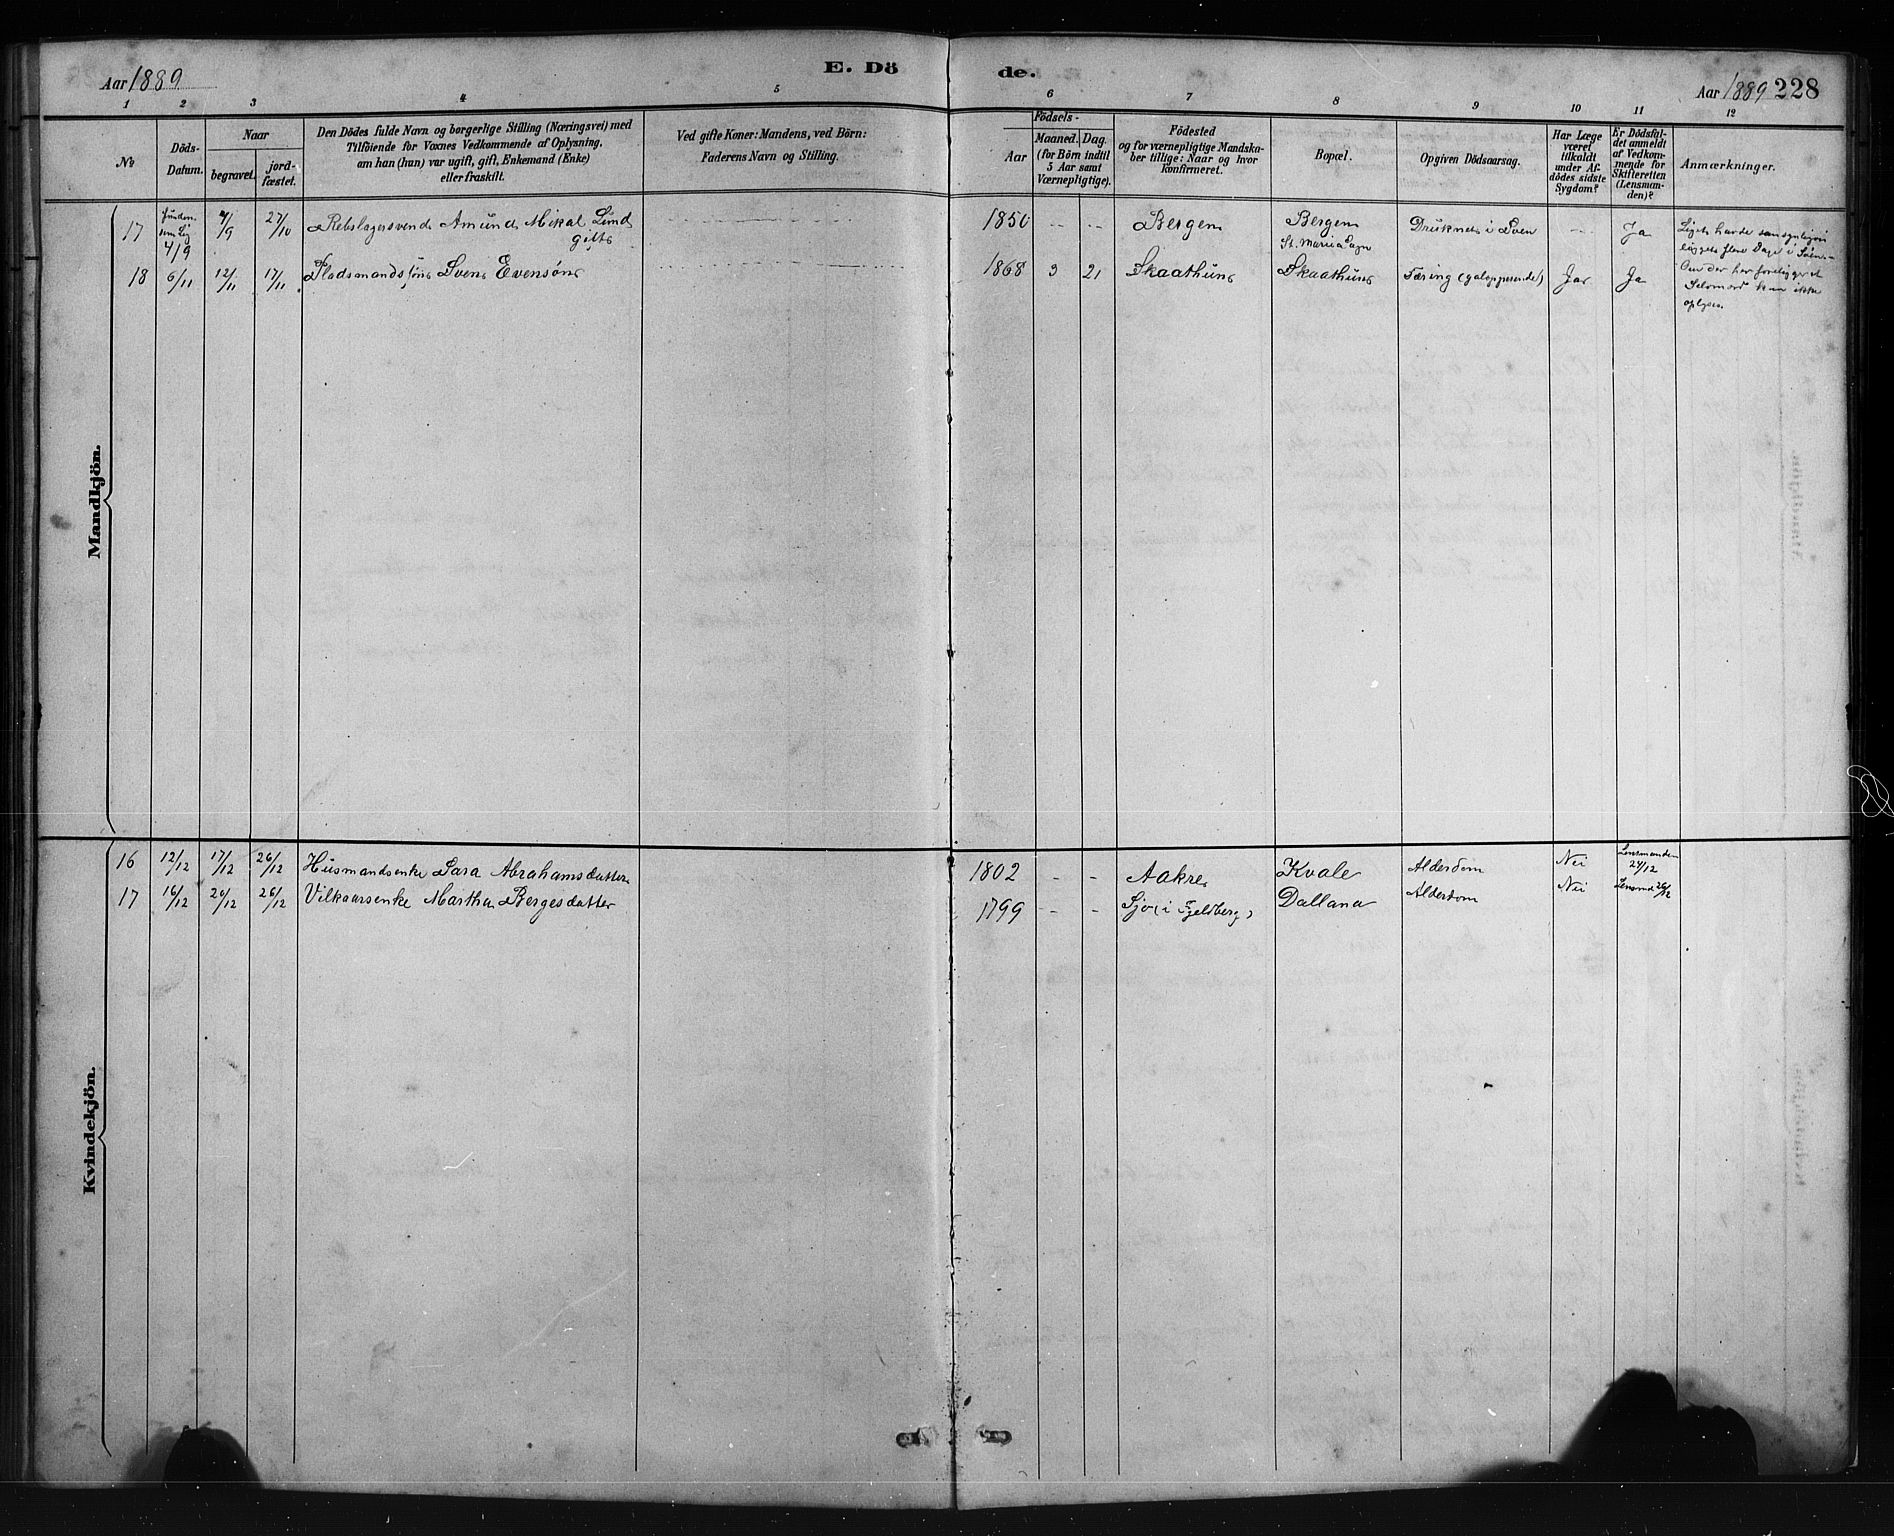 Aar 1889.
E. Dö
de.
Aar 1889 228
1 2 3 4 5 6 7 8 9 10 11 12
No
Döds-
Datum.
Naar
begravet.
jord-
fæstet.
Den Dödes fulde Navn og borgerlige Stilling (Næringsvei) med
Tilföiende for Voxnes Vedkommende af Oplysning,
om han (hun) var ugift, gift, Enkemand (Enke)
eller fraskilt.
Ved gifte Koner: Mandens, ved Börn:
Faderens Navn og Stilling.
Födsels-
Aar
Maaned. Dag.
(for Börn indtil
5 Aar samt
Værnepligtige).
Födested
og for værnepligtige Mandska-
ber tillige: Naar og hvor
konfirmeret.
Bopæl.
Opgiven Dödsaarsag.
Har Læge
været
tilkaldt
under Af-
dödes sidste
Sygdom?
Er Dödsfal-
det anmeldt
af Vedkom-
mende for
Skifteretten
(Lensman-
den)?
Anmærkninger.
Mandkjön.
17 funden som Lig 4/9 7/9 27/10 Rebslagersvend Amund Mikal Lund
gift
1850 -- -- Bergen Bergen Druknet i Søen -- Ja
St. Maria Sogn
Liget havde sansynligvis
ligget flere Dage i Søen.
Om der har foreligget
Selvmord kan ikke
oplyses.
18 6/11 12/11 17/11 Pladsmandssøn Sven Evensøn 1868 3 21 Skaathun Skaathun Tæring (galopperende) Ja Ja
Kvindekjön.
16 12/12 17/12 26/12 Husmandsenke Sara Abrahamsdatter 1802 - - Aakre Kvale Alderdom Nei Lensmanden 24/12
17 16/12 20/12 26/12 Vilkaarsenke Martha Bergesdatter 1799 - - Sjo (i Fjeldberg) Dallana Alderdom Nei Lensmd 26/12